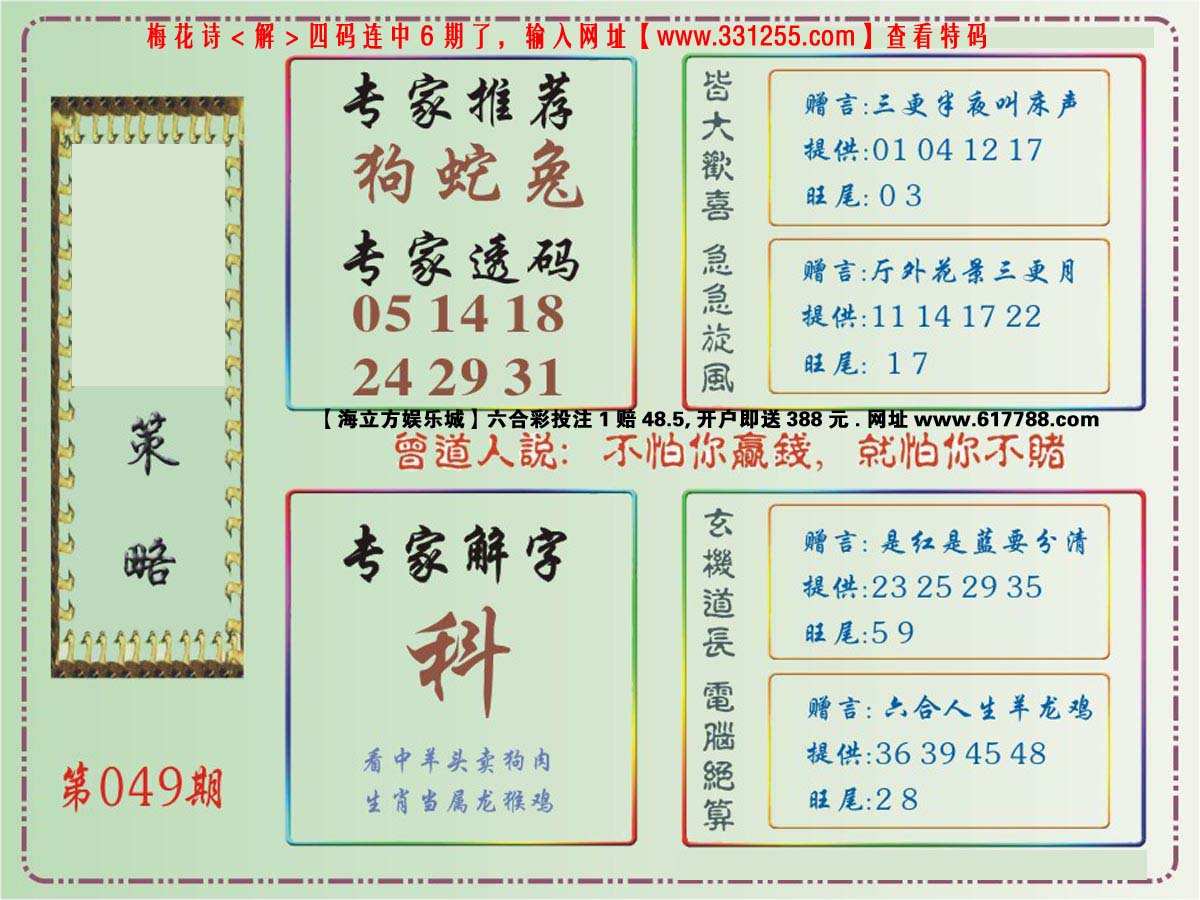 梅花诗<解>四码连中6期了，输入网址【www.331255.com】查看特码
策
略
第049期
专家推荐
狗蛇兔
专家透码
05 14 18
24 29 31
皆大歡喜
赠言:三更半夜叫床声
提供:01 04 12 17
旺尾: 0 3
急急旋風
赠言:厅外花景三更月
提供:11 14 17 22
旺尾: 1 7
【海立方娱乐城】六合彩投注1赔48.5,开户即送388元.网址www.617788.com
曾道人説：不怕你贏錢，就怕你不賭
专家解字
科
看中羊头卖狗肉
生肖当属龙猴鸡
玄機道長
赠言: 是红是蓝要分清
提供:23 25 29 35
旺尾:5 9
電腦絕算
赠言: 六合人生羊龙鸡
提供:36 39 45 48
旺尾:2 8